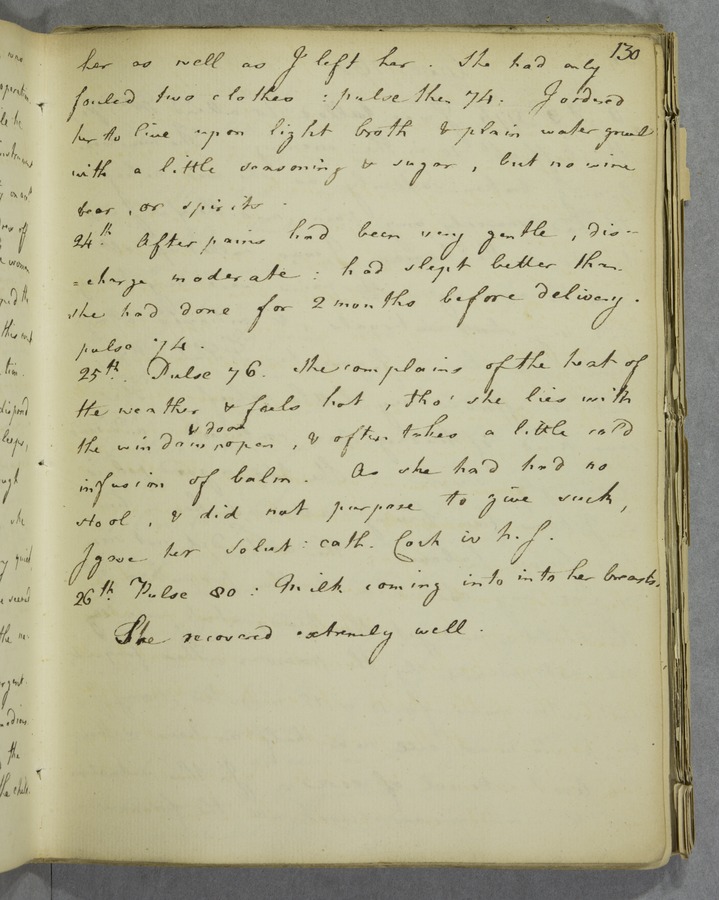 130
her as well as I left her. She had only
fouled two clothes : pulse then 74. I ordered
her to live upon light broth & plain water gruel
with a little seasoning & sugar, but no wine
bear, or spirits.
24th. After pains had been very gentle, dis-
=charge moderate : had slept better than
she had done for 2 months before delivery.
pulse 74.
25th. Pulse 76. She complains of the heat of
the weather & feels hot, tho' she lies with
& door
the window open, & often takes a little cold
infusion of balm. As she had had no
stool, & did not purpose to give suck,
I gave her Solut: cath. Cock iv h. s.
26th Pulse 80 : Milk coming into into her breasts.
She recovered extremely well.